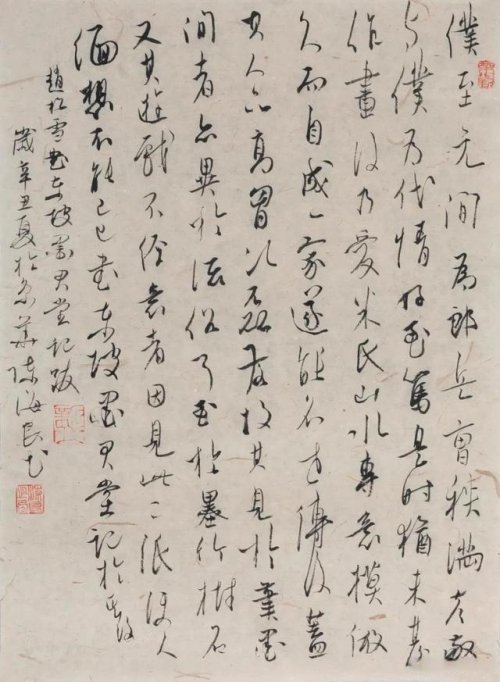 僕至元間為郎兵曹秩滿彥敬
與僕為代情好至篤是時猶未甚
作畫後乃愛米氏山水專意模倣
久而自成一家遂能名世傳後蓋
其人品高胸次磊落故其見於筆墨
間者亦異於流俗耳至於墨竹樹石
又其遊戲不經意者因見此二紙使人
緬想不能已已書東坡墨君堂記於其後
趙松雪書東坡墨君堂記跋
歲辛丑夏於京華陳海良書